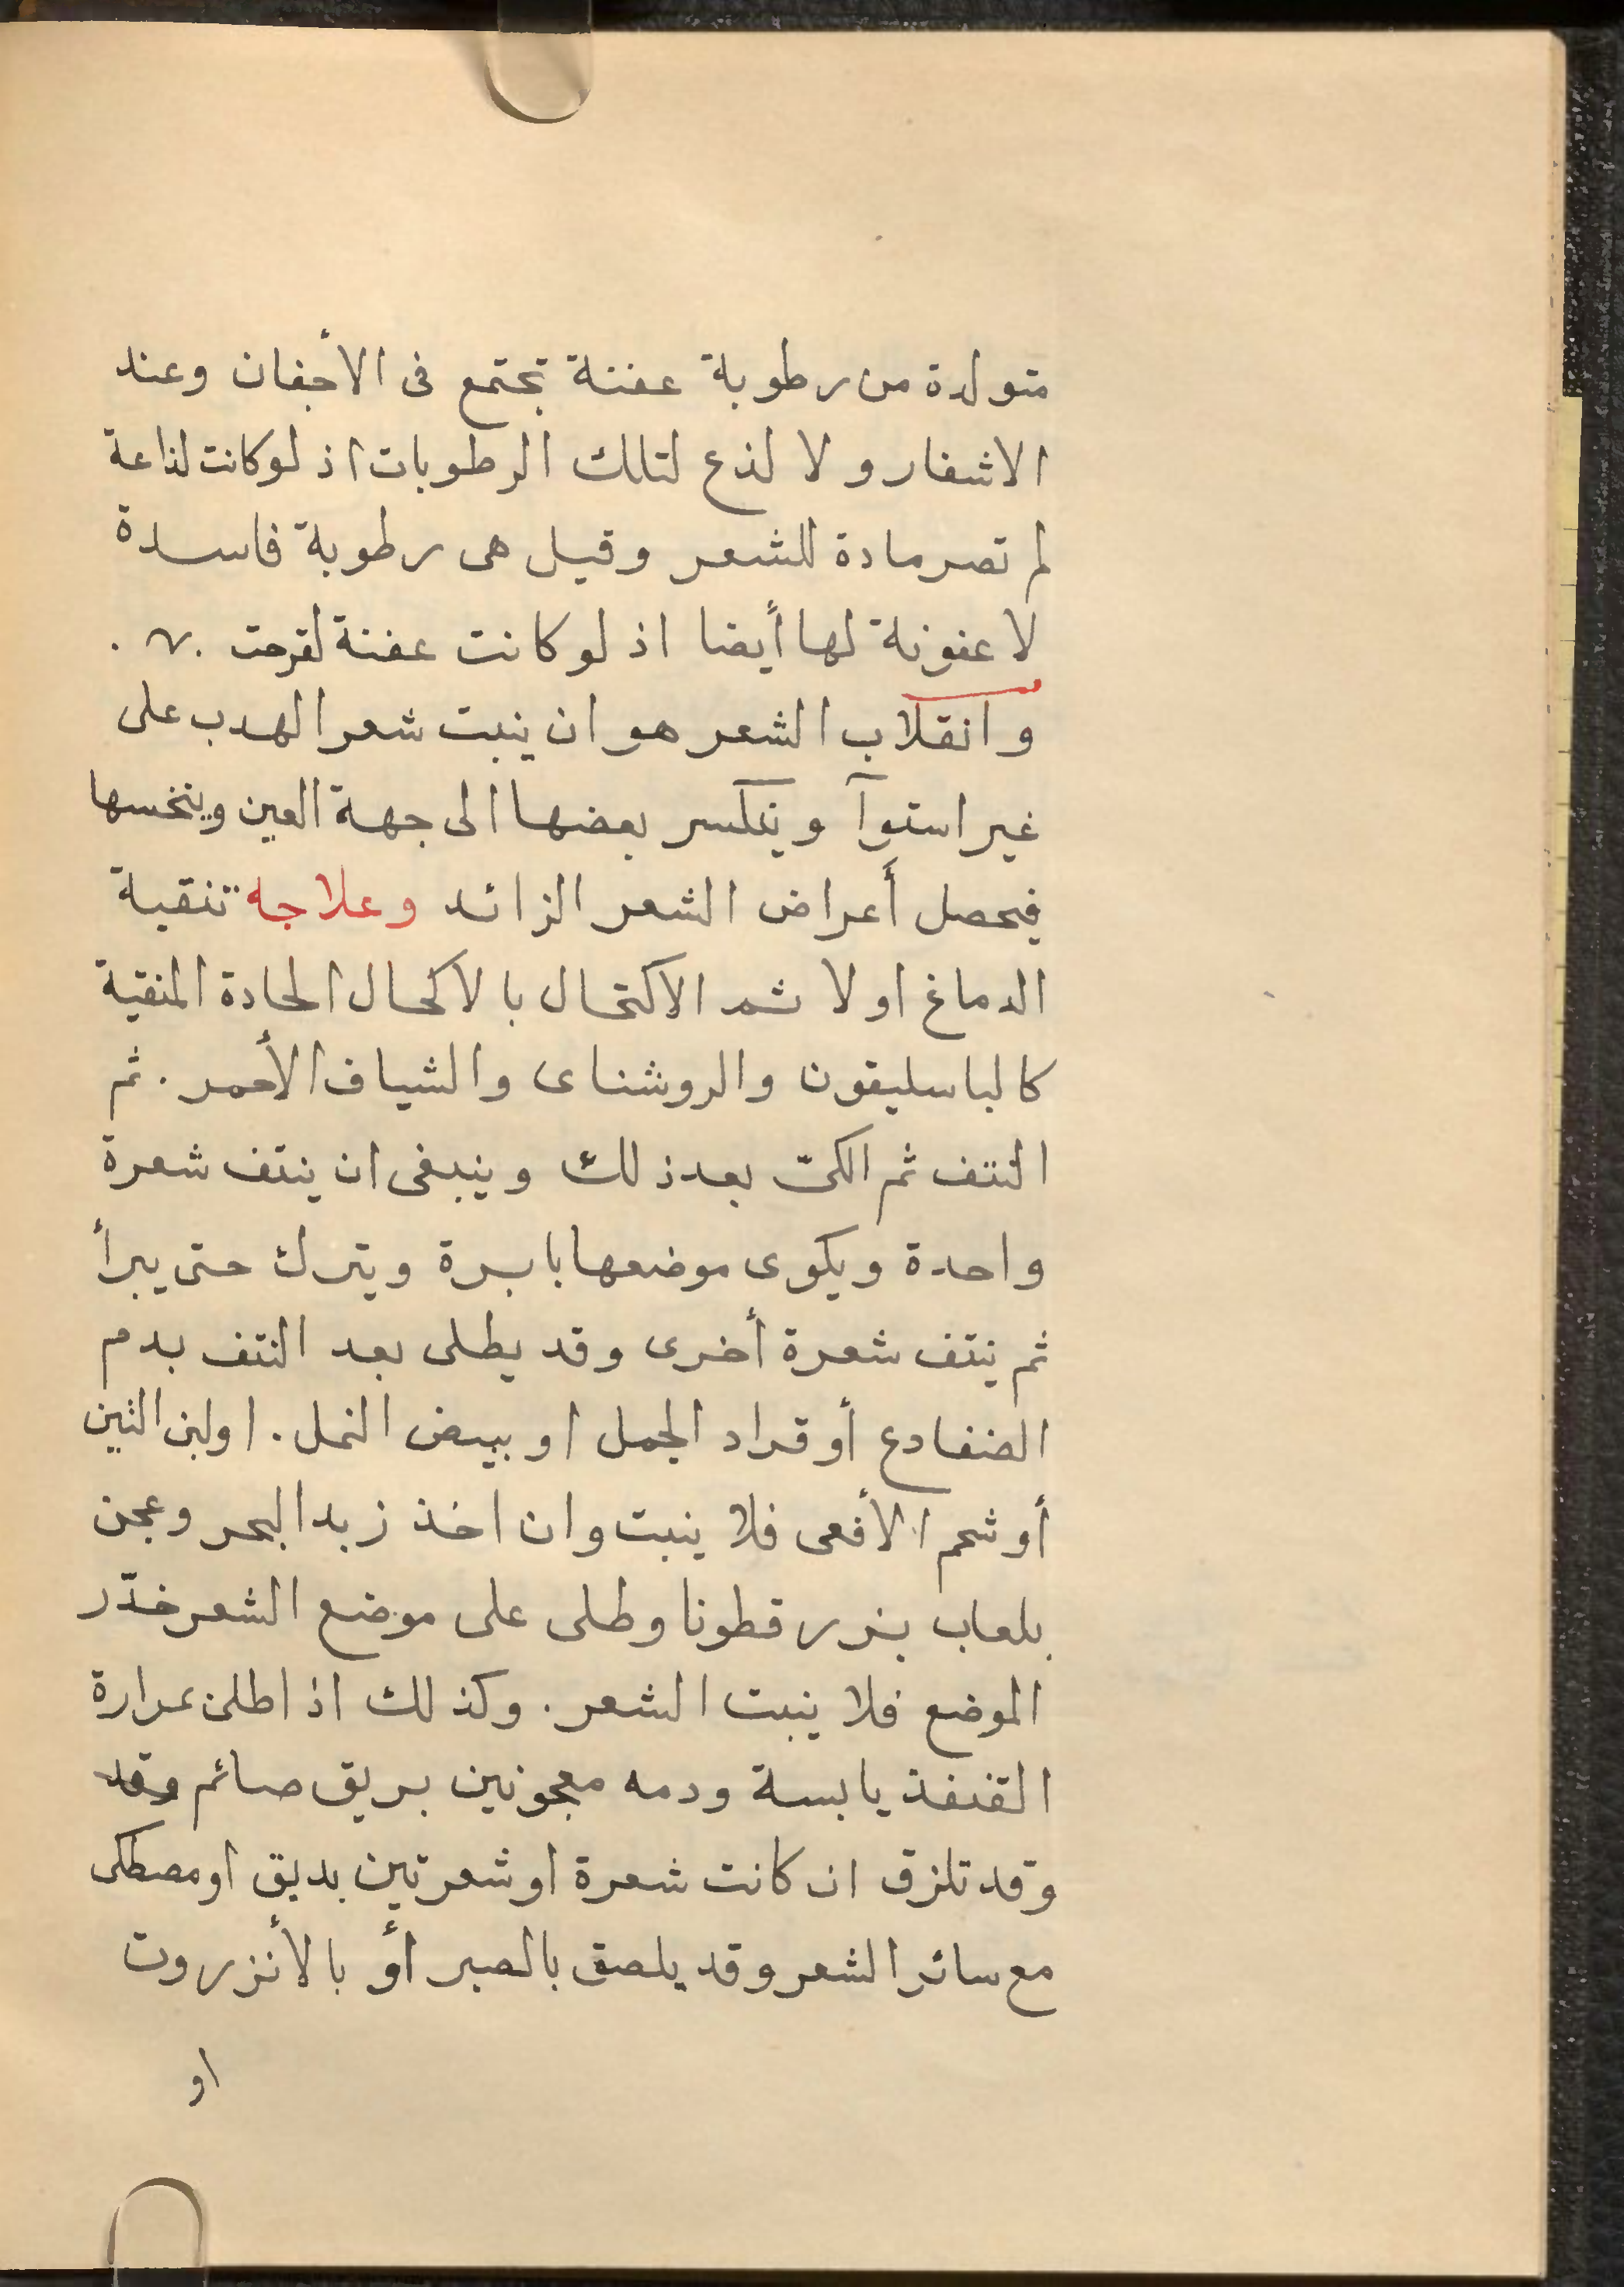 متولدة من رطوبة عفنة تجتمع فى الأجفان وعند
الاشفار ولا لذع لتلك الرطوبات اذ لوكانت لذاعة
لم تصر مادة للشعر وقيل هى رطوبة فاسدة
لا عفونة لها أيضا اذ لو كانت عفنة لقرحت .
وانقلاب الشعر هو ان ينبت شعر الهدب على
غير استوآ وينكسر بعضها الى جهة العين وينخسها
فيحصل أعراض الشعر الزائد وعلاجه تنقية
الدماغ اولا ثم الاكتحال بالاكحال الحادة المنقية
كالباسليقون والروشناى والشياف الأحمر . ثم
النتف ثم الكىّ بعد ذلك وينبغى ان ينتف شعرة
واحدة ويكوى موضعها بابرة ويترك حتى يبرأ
ثم ينتف شعرة أخرى وقد يطلى بعد النتف بدم
الضفادع أو قراد الجمل او بيض النمل . اولبن التين
أو شحم الأفعى فلا ينبت وان اخذ زبد البحر وعجن
بلعاب بزر قطونا وطلى على موضع الشعر خدّر
الموضع فلا ينبت الشعر . وكذلك اذا طلى بمرارة
القنفذ يابسة ودمه معجونين بريق صائم وقد
وقد تلزق ان كانت شعرة او شعرتين بدبق او مصطكى
مع سائر الشعر وقد يلصق بالصبر أو بالأنزروت
او